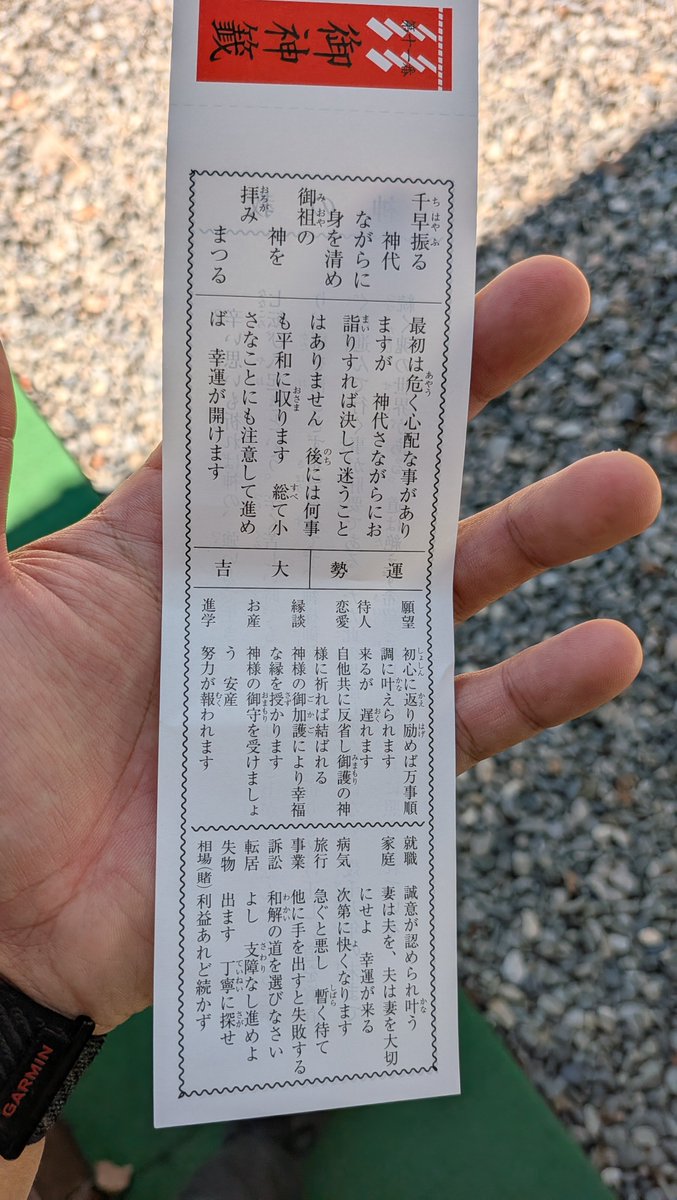 御神籤
第十一番
千早振る
神代
ながらに
身を清め
御祖の
神を
拝み
まつる
最初は危く心配な事があり
ますが 神代さながらにお
詣りすれば決して迷うこと
はありません 後には何事
も平和に収ります 総て小
さなことにも注意して進め
ば 幸運が開けます
運勢
大吉
願望 初心に返り励めば万事順
調に叶えられます
待人 来るが 遅れます
恋愛 自他共に反省し御護の神
様に祈れば結ばれる
縁談 神様の御加護により幸福
な縁を授かります
お産 神様の御守を受けましょ
う 安産
進学 努力が報われます
就職 誠意が認められ叶う
家庭 妻は夫を、夫は妻を大切
にせよ 幸運が来る
病気 次第に快くなります
旅行 急ぐと悪し 暫く待て
事業 他に手を出すと失敗する
訴訟 和解の道を選びなさい
転居 よし 支障なし進めよ
失物 出ます 丁寧に探せ
相場(賭) 利益あれど続かず
GARMIN